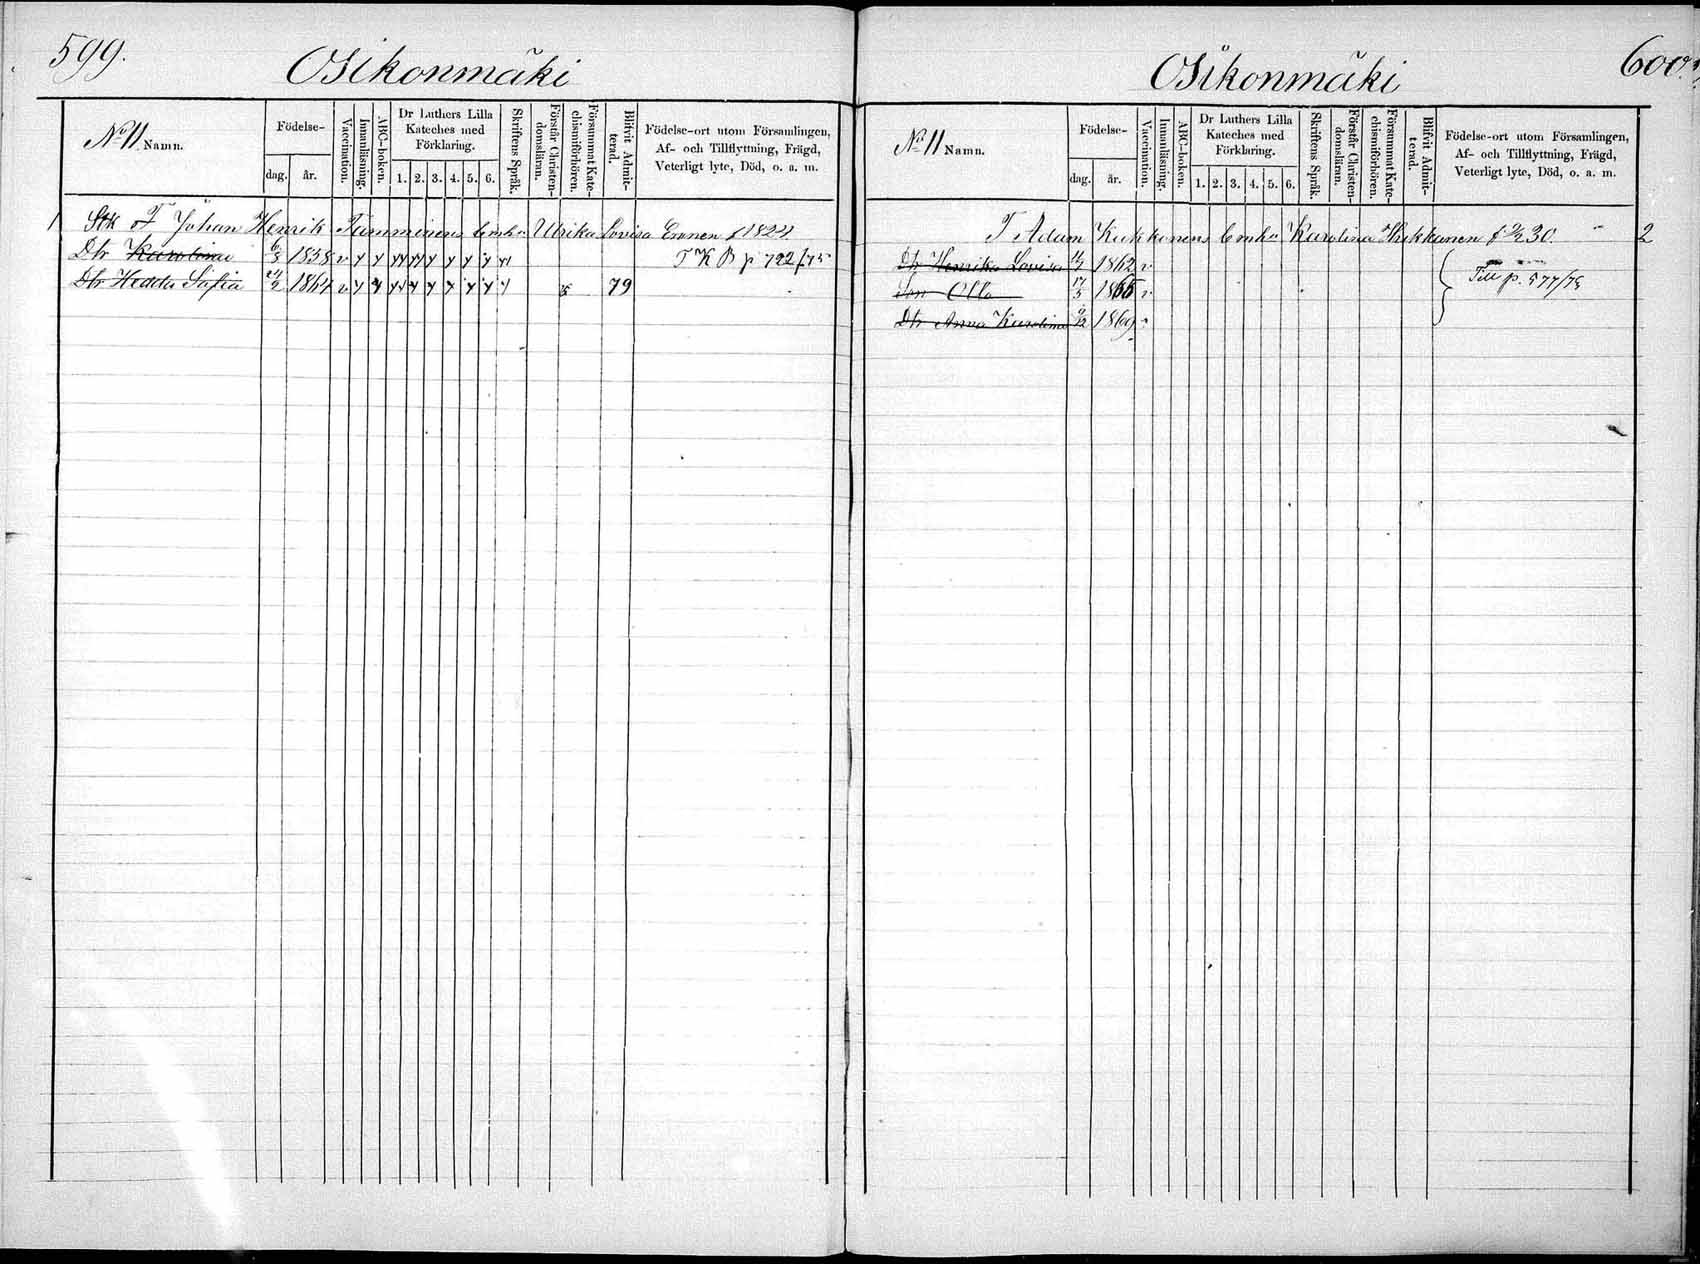 599.
Osikonmäki
No 11 Namn.
Födelse-
dag. år.
Vaccination.
Innanläsning.
ABC-boken.
Dr Luthers Lilla Kateches med Förklaring.
1. 2. 3. 4. 5. 6.
Skriftens Språk.
Förstår Christendomsläran.
Försummat Katechismiförhören.
Blifvit Admitterad.
Födelse-ort utom Församlingen,
Af- och Tillflyttning, Frägd,
Veterligt lyte, Död, o. a. m.
1 T Johan Henrik Tamminens Enka Ulrika Lovisa Eronen f 1824.
Dtr Karolina 6/3 1858 T K B p 722/75
Dtr Hedda Sofia 1864 79
Osikonmäki
600.
No 11 Namn.
Födelse-
dag. år.
Vaccination.
Innanläsning.
ABC-boken.
Dr Luthers Lilla Kateches med Förklaring.
1. 2. 3. 4. 5. 6.
Skriftens Språk.
Förstår Christendomsläran.
Försummat Katechismiförhören.
Blifvit Admitterad.
Födelse-ort utom Församlingen,
Af- och Tillflyttning, Frägd,
Veterligt lyte, Död, o. a. m.
T Adam Kukkonens Karolina 30. 2
Dtr Henrika Lovisa 1862
Son Olle 17/5 1866 Till p. 577/78
Dtr Anna Karolina 9/12 1869